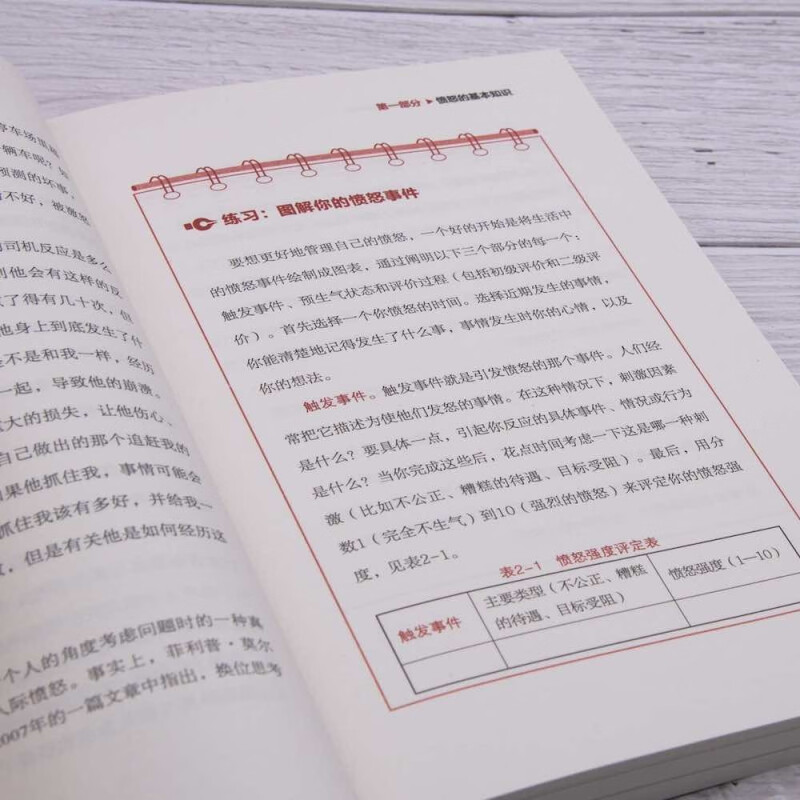 车场里
辆车呢？
预测的坏事，
不好，被激怒
司机反应是多么
到他会有这样的反
了得有几十次，但
他身上到底发生了什
是不是和我一样，经历
一起，导致他的崩溃。
大的损失，让他伤心、
自己做出的那个追赶我的
如果他抓住我，事情可能会
抓住我该有多好，并给我一
，但是有关他是如何经历这
个人的角度考虑问题时的一种真
人际愤怒。事实上，菲利普·莫尔
2007年的一篇文章中指出，换位思考
第一部分 ▶ 愤怒的基本知识
练习：图解你的愤怒事件
要想更好地管理自己的愤怒，一个好的开始是将生活中
的愤怒事件绘制成图表，通过阐明以下三个部分的每一个：
触发事件、预生气状态和评价过程（包括初级评价和二级评
价）。首先选择一个你愤怒的时间。选择近期发生的事情，
你能清楚地记得发生了什么事，事情发生时你的心情，以及
你的想法。
触发事件。触发事件就是引发愤怒的那个事件。人们经
常把它描述为使他们发怒的事情。在这种情况下，刺激因素
是什么？要具体一点，引起你反应的具体事件、情况或行为
是什么？当你完成这些后，花点时间考虑一下这是哪一种刺
激（比如不公正、糟糕的待遇、目标受阻）。最后，用分
数1（完全不生气）到10（强烈的愤怒）来评定你的愤怒强
度，见表2-1。
表2-1 愤怒强度评定表
触发事件
主要类型（不公正、糟糕
的待遇、目标受阻）
愤怒强度（1—10）